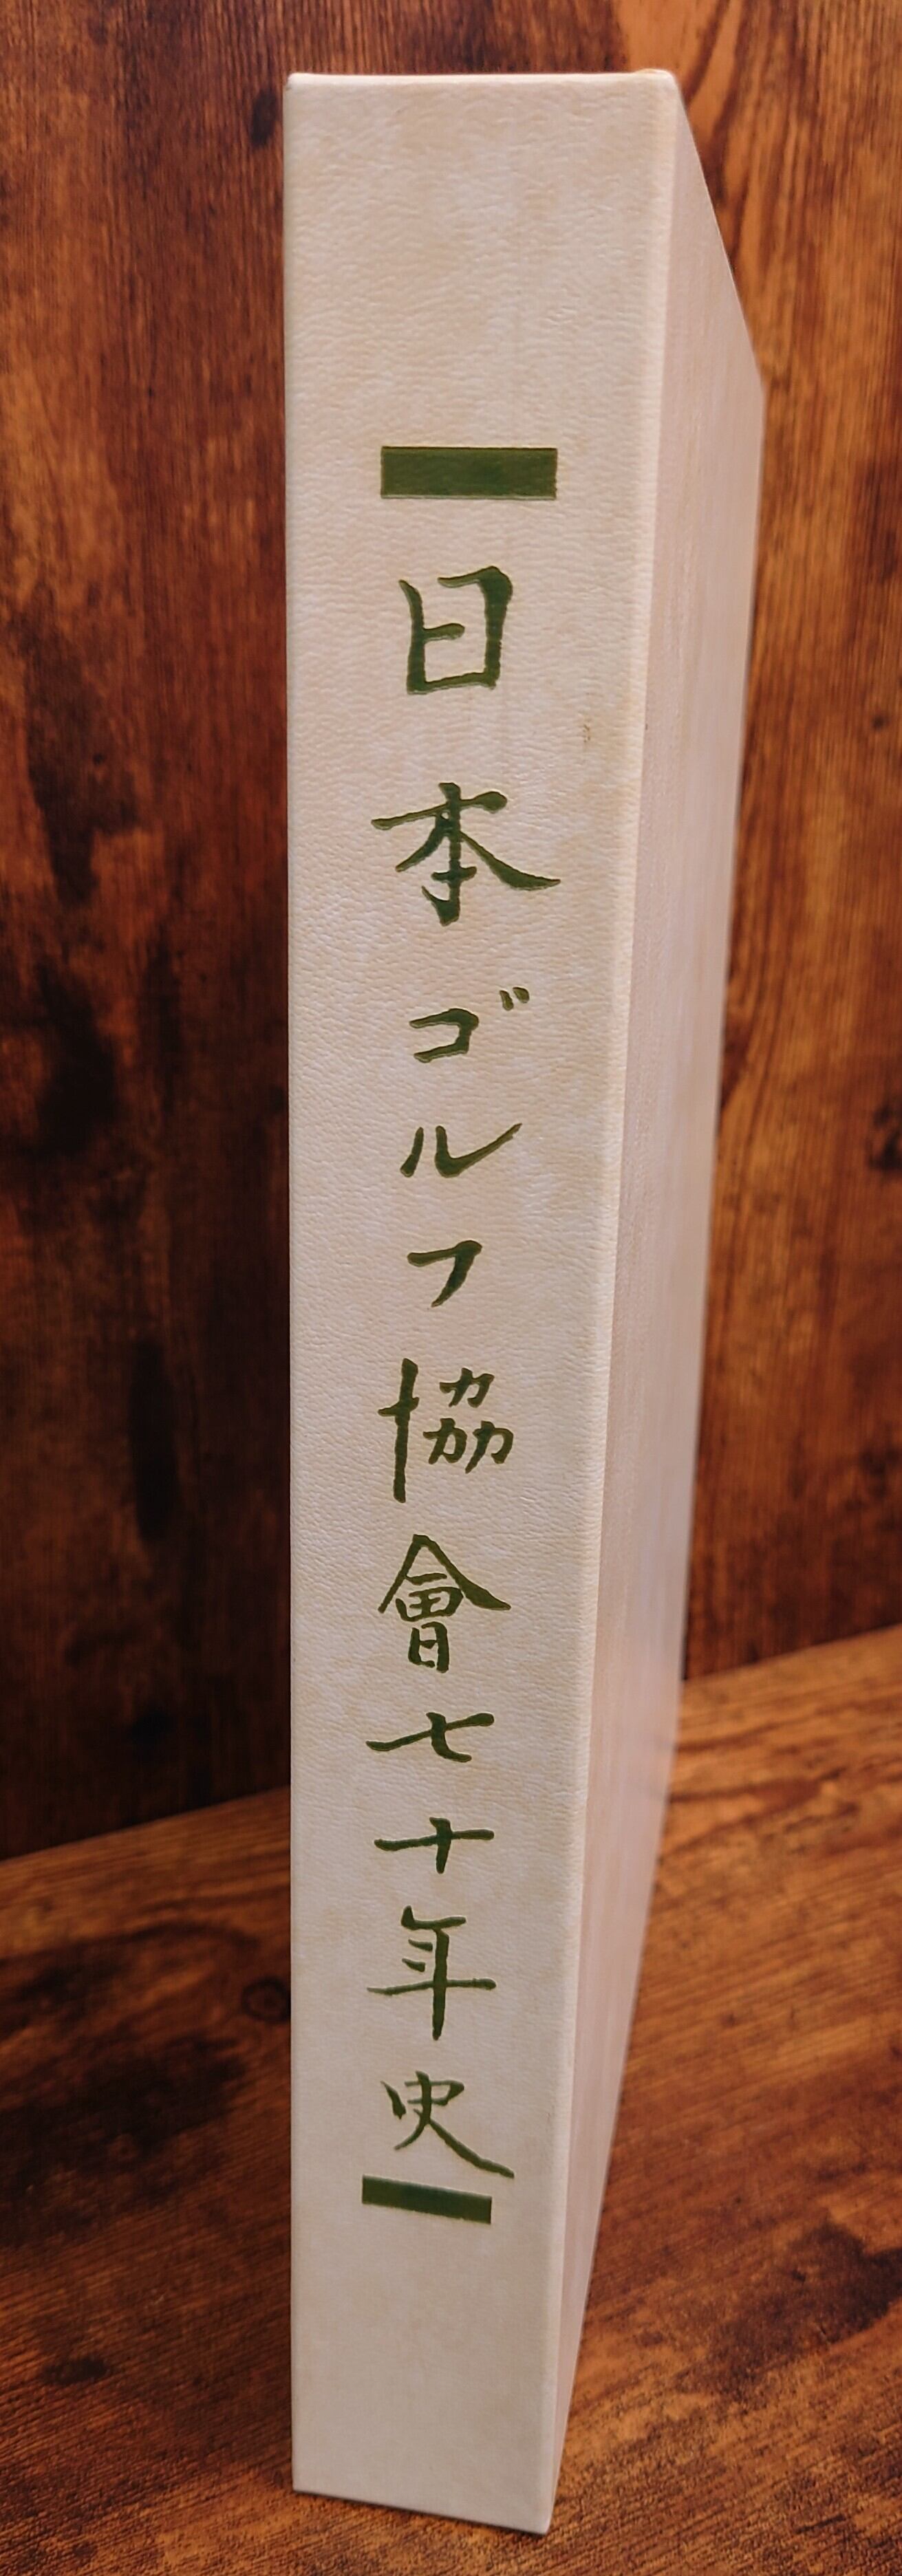 日本ゴルフ協會七十年史